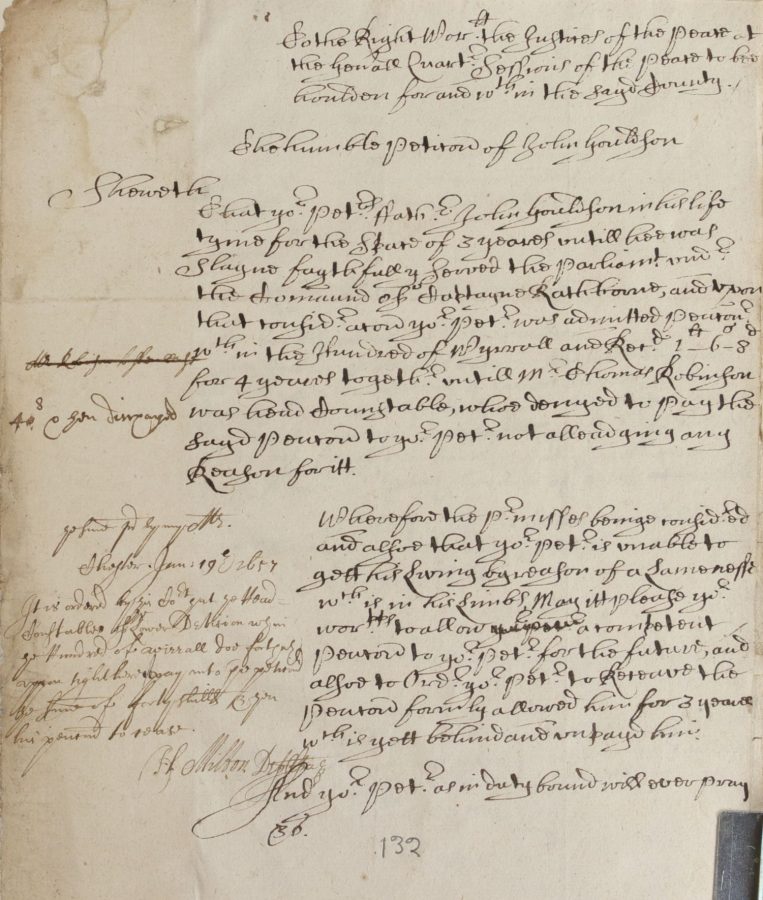 To the Right Wor.ll the Justices of the Peace at
the gen.all Quart.r Sessions of the Peace to bee
houlden for and w.th in the sayd County.
The humble Peticon of John Houldson
Sheweth
That yo.r Pet.rs ffath.r John Houldson in his life
tyme for the space of 3 yeares untill hee was
Slayne faythfully served the Parliam.t und.r
the Comaund of Captayne Rathborne, and upon
that consid.racon yo.r Pet.r was admitted Pencon.r
w.th in the Hundred of Wyrrall and Rec.d 1ll - 6s - 8d
for 4 yeares togeth.r untill M.r Thomas Robinson
was head Counstable, whoe denyed to Pay the
sayd Pencon to yo.r Pet.r not alleadging any
Reason for itt.
40.s
Wherefore the P.rmisses beinge consid.red
and alsoe that yo.r Pet.r is unable to
gett his Living by reason of a Lamenesse
w.ch is in his Limbs May itt please yo.r
wor.pps to allow a competent
Pencon to yo.r Pet.r for the future, and
alsoe to Ord.r yo.r Pet.r to Receave the
Pencon form.ly allowed him for 3 yeares
w.ch is gott behind and unpayd him.
And yo.r Pet.r as in duty bound will ever pray
&c.
Chester. Jan: 19th 1657
It is ordered by the Co.rt that the Head
Constables of Lower Division w.thin
the Hundred of Wirrall doe
pay unto the pet
the sume of forty shill.s &
his pencon to cease.
132